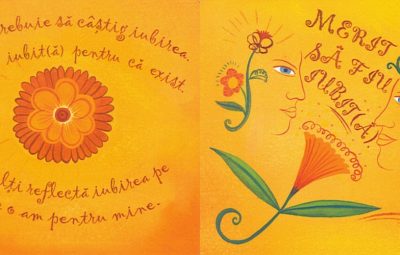 rebuie să câștig iubirea.
iubit(ă) pentru că exist.
lți reflectă iubirea pe
o am pentru mine.
MERIT
SĂ FIU
IUBIT(Ă)